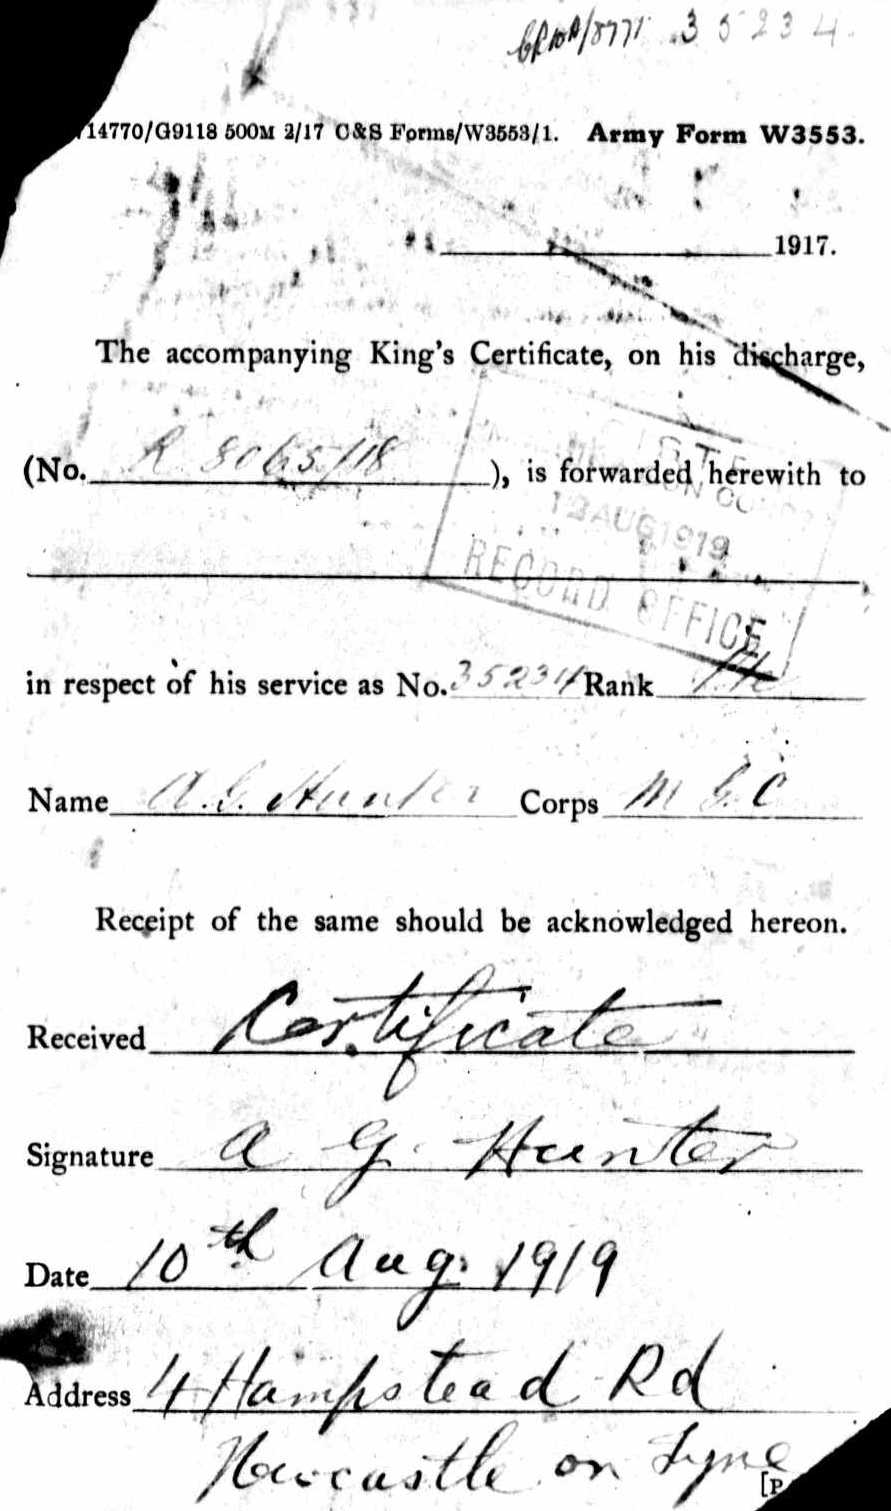 35234
14770/G9118 500M 2/17 C&S Forms/W3553/1. Army Form W3553.
1917.
The accompanying King's Certificate, on his discharge,
(No. R 8065/18), is forwarded herewith to
12 AUG 1919
RECORD OFFICE
in respect of his service as No. 35234 Rank Pte
Name A. G. Hunter Corps M G C
Receipt of the same should be acknowledged hereon.
Received Certificate
Signature A G. Hunter
Date 10th Aug. 1919
Address 4 Hampstead Rd
Newcastle on Tyne
[P